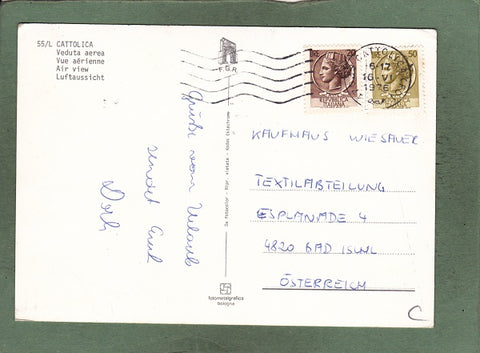 55/L CATTOLICA
Veduta aerea
Vue aérienne
Air view
Luftaussicht
F.G.R
20
50
REPVBBLICA
ITALIANA
16-17
10-VI
1976
Grüße vom Urlaub
sendet Euch
Dorli
KAUFHAUS WIESAUER
TEXTILABTEILUNG
ESPLANADE 4
4820 BAD ISCHL
ÖSTERREICH
fotometalgrafica
bologna
C